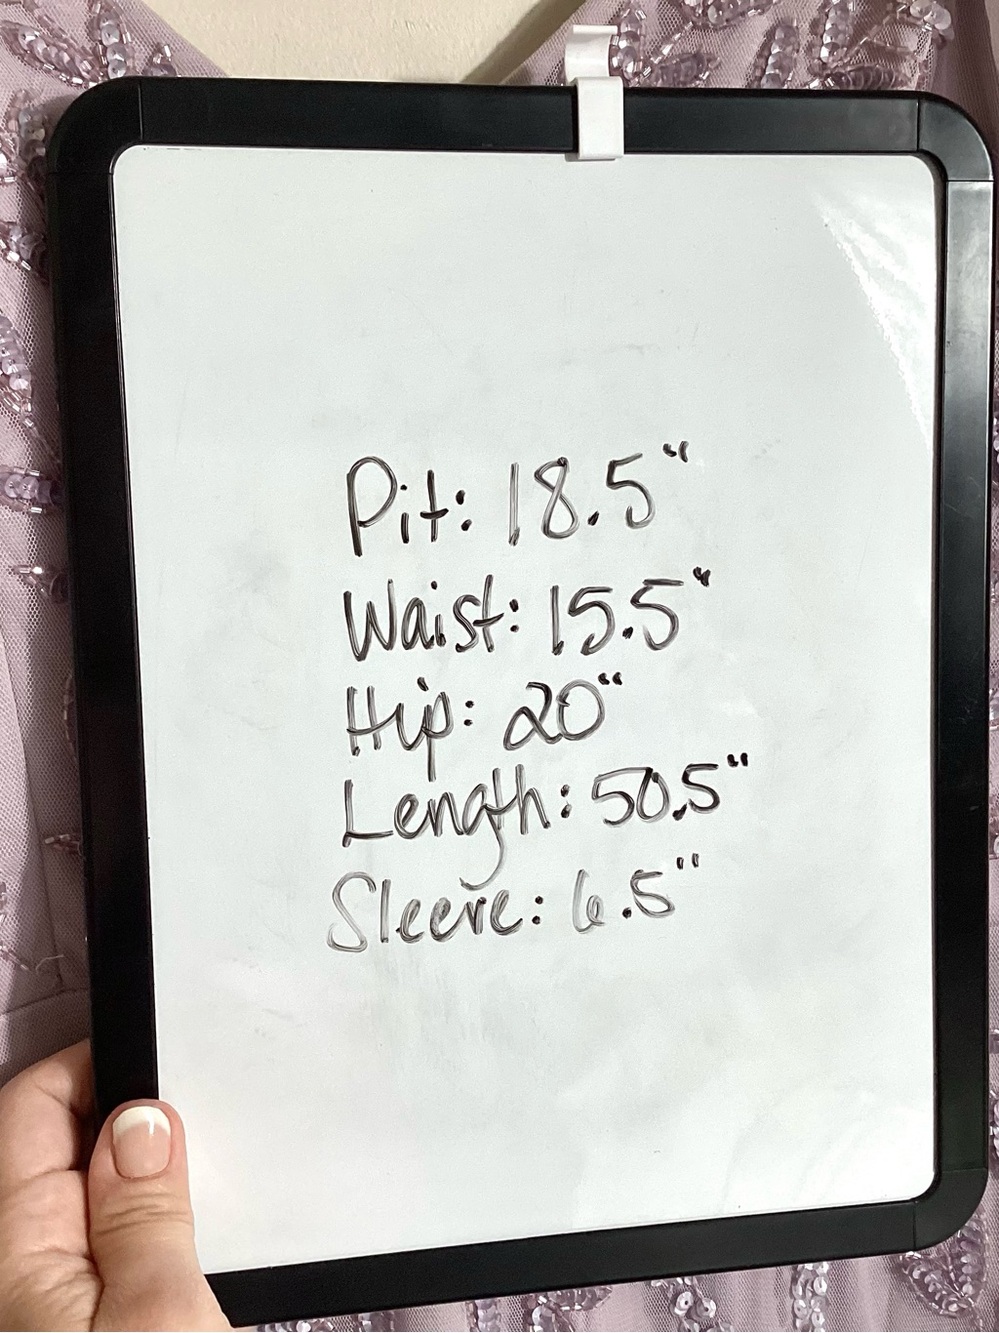 Pit: 18.5"
Waist: 15.5"
Hip: 20"
Length: 50.5"
Sleeve: 6.5"